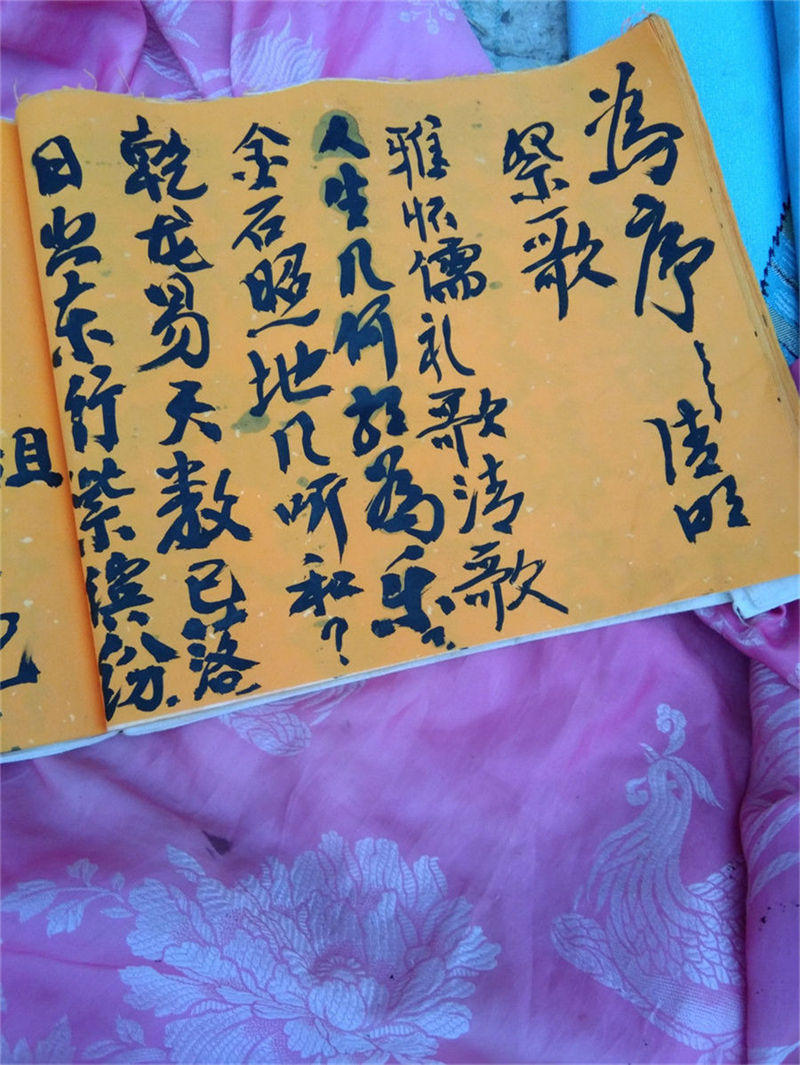 为序——清明
祭歌
雅怀儒礼歌清歌
人生几何 为乐?
金石照地几听和?
乾龙易天数已落
日出东行紫缤纷.
祖